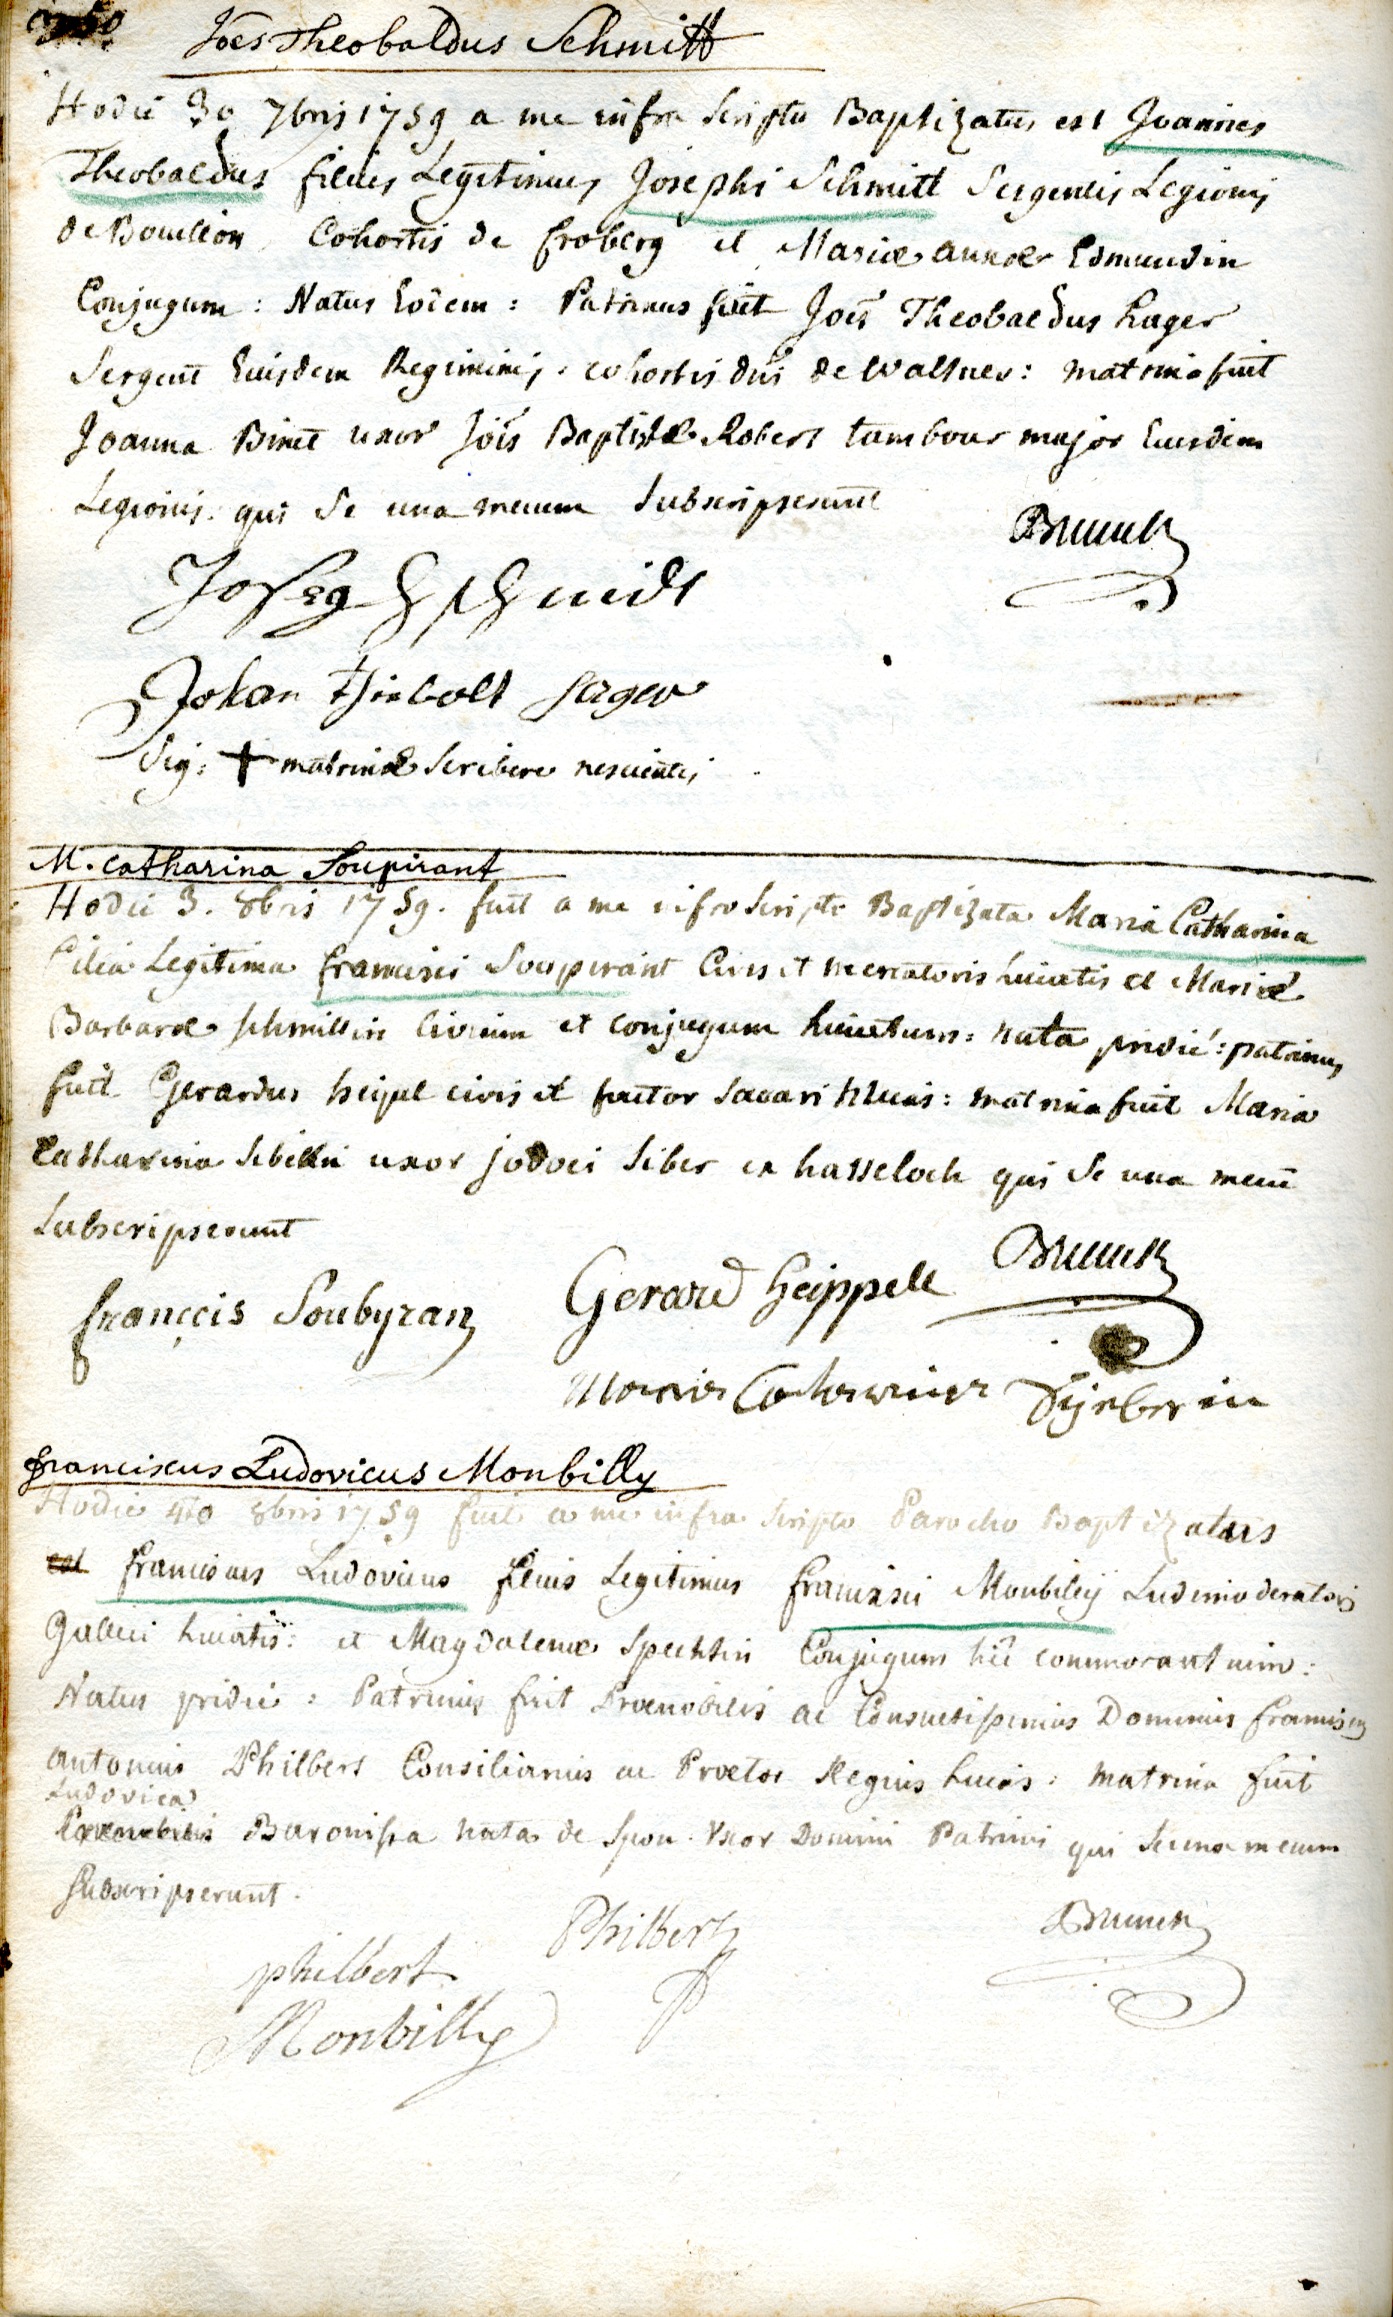 Joes Theobaldus Schmitt
Hodie 30 7bris 1759 a me infra scripto Baptizatus est Joannes
Theobaldus filius Legitimus Josephi Schmitt Sergentis Legionis
de Bouillon Cohortis de froberg et Mariæ annæ Edmundin
Conjugum : Natus Eodem : Patrinus fuit Jois Theobaldus hager
Sergent Eiusdem Regiminis . cohortis dni de Waltner : matrina fuit
Joanna Binet uxor Jois Baptistæ Robert tambour major Eiusdem
Legionis . qui se una mecum subscripserunt
Brunck
Joseph Schmidt
Johan thiebolt hager
Sig : + matrinæ scribere nescientis
M. Catharina Soupirant
Hodie 3. 8bris 1759. fuit a me infra scripto Baptizata Maria Catharina
filia Legitima francisci Soupirant Civis et mercatoris huiatis et Mariæ
Barbaræ schmittin civium et conjugum huiatum : nata pridie : patrinus
fuit Gerardus heipel civis et factor saccari huias : matrina fuit Maria
Catharina siberin uxor jodoci siber ex hasseloch qui se una mecu
subscripserunt
Brunck
françois Soubyran
Gerard heippell
Maria Catharina Syeberin
franciscus Ludovicus Monbilly
Hodie 4to 8bris 1759 fuit a me infra scripto Parocho Baptizatus
est franciscus Ludovicus filius Legitimus francisci Monbilly Ludimoderatoris
Gallici huiatis : et Magdalenæ Spechtin Conjugum hic commorantium :
Natus pridie : Patrinus fuit Prænobilis ac Consultissimus Dominus franciscus
antonius Philbert Consiliarius ac Prætor Regius huias : matrina fuit
Ludovica
Prænobilis Baronissa nata de Spon . Uxor Domini Patrini qui se una mecum
subscripserunt .
Brunck
Philbert
philbert
Monbilly